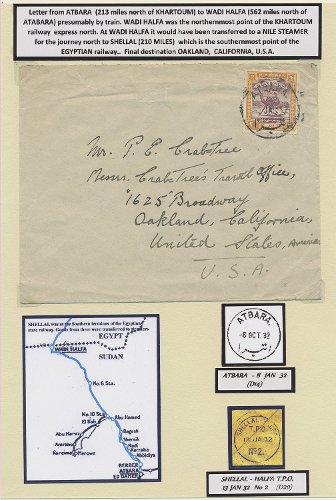 Letter from ATBARA (213 miles north of KHARTOUM) to WADI HALFA (562 miles north of
ATABARA) presumably by train. WADI HALFA was the northernmost point of the KHARTOUM
railway express north. At WADI HALFA it would have been transferred to a NILE STEAMER
for the journey north to SHELLAL (210 MILES) which is the southernmost point of the
EGYPTIAN railway.. Final destination OAKLAND, CALIFORNIA, U.S.A.
Mr. P. E. Crabtree
Messrs. Crabtree's Travel Office,
"1625" Broadway
Oakland, California,
United States, America
U.S.A.
SHELLAL was at the Southern terminus of the Egyptian
state railway. Goods from there were transferred to steamers
WADI HALFA
EGYPT
SUDAN
No.6 Sta.
No.10 Sta.
El Kab
Abu Hamed
Abu Marou
Kareima
Merowe
Dagash
Shereik
Nedi
Karraba
Abidiya
BERBER
ATBARA
ED DAMER
ATBARA.
-8 OCT. 32
ATBARA - 8 JAN 32
SHELLAL
T.P.O.
13 JA 32
No2.
SHELLAL - HALFA T.P.O.
13 JAN 32 No 2 (D20)